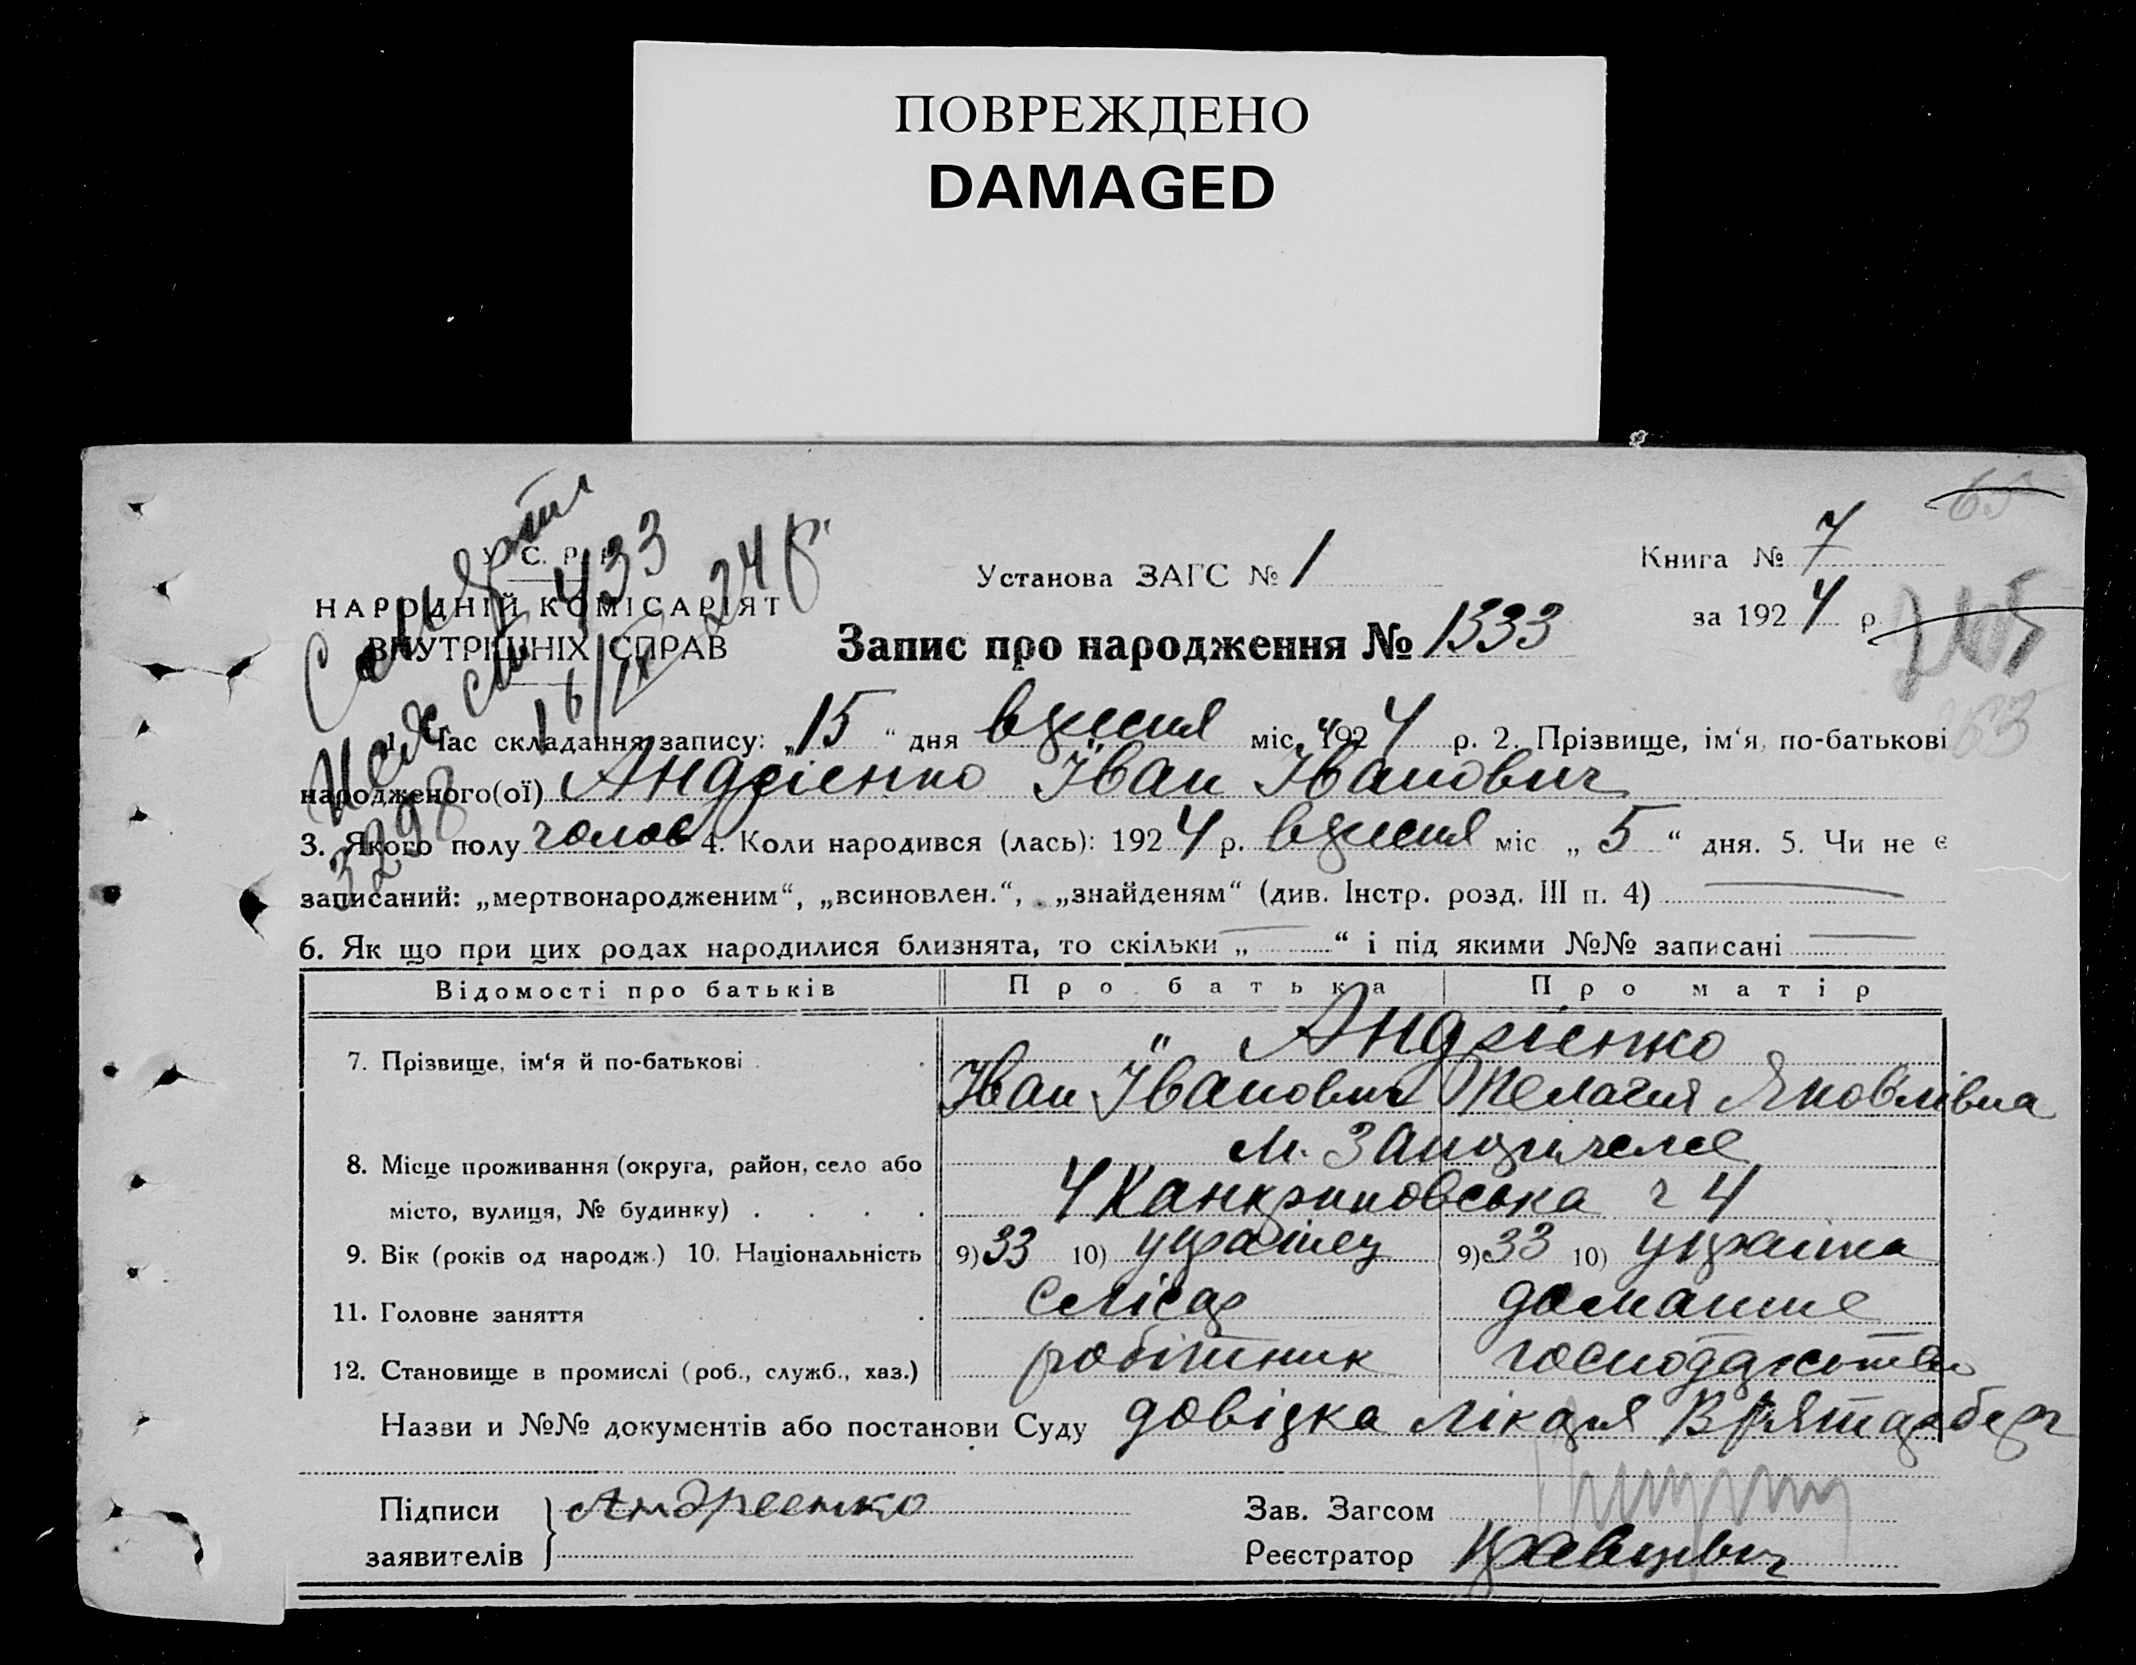 ПОВРЕЖДЕНО
DAMAGED
65
У. С. Р. Р.
НАРОДНІЙ КОМІСАРІЯТ
ВНУТРІШНІХ СПРАВ
433
16/IX 24 р.
3298
Установа ЗАГС № 1
Книга № 7
за 1924 р
Запис про народження № 1333
63
1. Час складання запису: „15“ дня вересня міс. 1924 р. 2. Прізвище, ім‘я, по-батькові
народженого(ої) Андрієнко Іван Іванович
3. Якого полу чолов 4. Коли народився (лась): 1924 р. вересня міс „5“ дня. 5. Чи не є
записаний: „мертвонародженим“, „всиновлен.“, „знайденям“ (див. Інстр. розд. III п. 4) —
6. Як що при цих родах народилися близнята, то скільки „—“ і під якими №№ записані —
Відомості про батьків Про батька Про матір
7. Прізвище, ім‘я й по-батькові " Андрієнко
Іван Іванович Пелагія Яковлівна
8. Місце проживання (округа, район, село або м.
місто, вулиця, № будинку) . . . . 4 Канкриновська 4
9. Вік (років од народж.) 10. Національність 9) 33 10) українец 9) 33 10) українка
11. Головне заняття слісар домашнє
12. Становище в промислі (роб., служб., хаз.) робітник господарство
Назви и №№ документів або постанови Суду довідка лікаря
Підписи Андреенко
заявителів
Зав. Загсом
Реєстратор